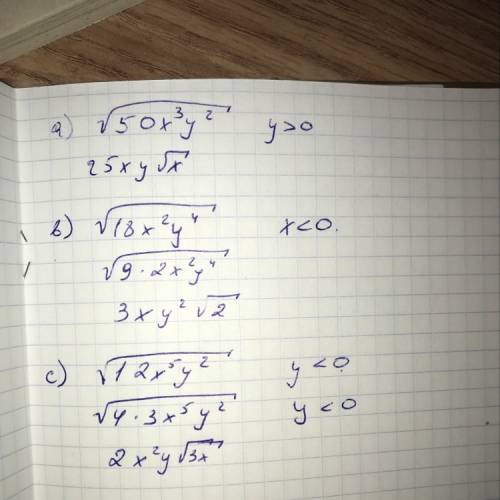 a) √50x³y² y>0
25xy√x
b) √18x²y⁴ x<0.
√9·2x²y⁴
3xy²√2
c) √12x⁵y² y<0
√4·3x⁵y² y<0
2x²y√3x